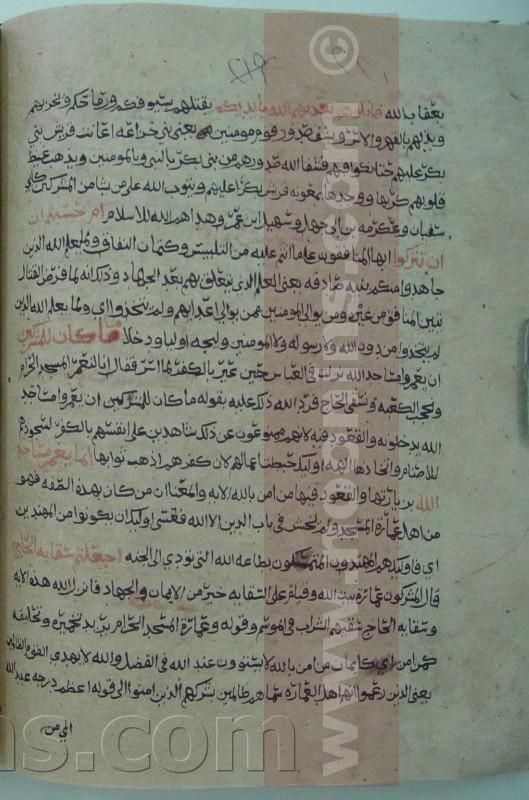 بعقاب الله قاتلوهم يعذبهم الله بايديكم بقتلهم بسيوفكم ورماحكم ويخزهم
ويذلهم بالقهر والاسر ويشف صدور قوم مومنين يعني بني خزاعه اعانت قريش بني
بكر عليهم حتى نكوا فيهم فشفا الله صدورهم من بني بكر بالنبي وبالمومنين ويذهب غيظ
قلوبهم كربها ووجدها بمعونه قريش بكرا عليهم ويتوب الله على من يشا من المشركين كابي
سفيان وعكرمه بن ابي جهل وسهيل ابن عمرو هداهم الله للاسلام ام حسبتم ان
ان تتركوا ايها المنافقون على ما انتم عليه من التلبيس وكتمان النفاق ولما يعلم الله الذين
جاهدوا منكم بنيه صادقه يعني العلم الذي يتعلق بهم بعد الجهاد وذلك انه لما فرض القتال
تبين المنافق من غيره ومن يوالي المومنين ممن يوالي اعدايهم ولم يتخذوا اي ولما يعلم الله الذين
لم يتخذوا من دون الله ولا رسوله ولا المومنين وليجه اوليا ودخلا ما كان للمشركين
ان يعمروا مساجد الله نزلت في العباس حين عير بالكفر لما اسر فقال انا لنعمر المسجد الحرام
ونحجب الكعبه ونسقي الحاج فرد الله ذلك عليه بقوله ما كان للمشركين ان يعمروا مساجد
الله بدخوله والقعود فيه لانهم ممنوعون عن ذلك شاهدين على انفسهم بالكفر لسجودهم
للاصنام واتخاذها الهه اوليك حبطت اعمالهم لان كفرهم اذهب ثوابها انما يعمر مساجد
الله بزيارتها والقعود فيها من امن بالله الايه والمعنا ان من كان بهذه الصفه فهو
من اهل عمارة المسجد ولم يخش في باب الدين الا الله فعسى اوليك ان يكونوا من المهتدين
اي فاوليك هم المهتدون المتمسكون بطاعه الله التي تودي الى الجنه اجعلتم سقايه الحاج
قال المشركون عمارة بيت الله وقيام على السقايه خير من الايمان والجهاد فانزل الله هذه الايه
وسقايه الحاج سقيهم الشراب في الموسم وقوله وعمارة المسجد الحرام يريد تجميره وتخليقه
كمن امن اي كايمان من امن بالله لا يستوون عند الله في الفضل والله لا يهدي القوم الظالمين
يعني الذين زعموا انهم اهل العمارة سماهم ظالمين بشركهم الذين امنوا الى قوله اعظم درجه عند الله
اي من